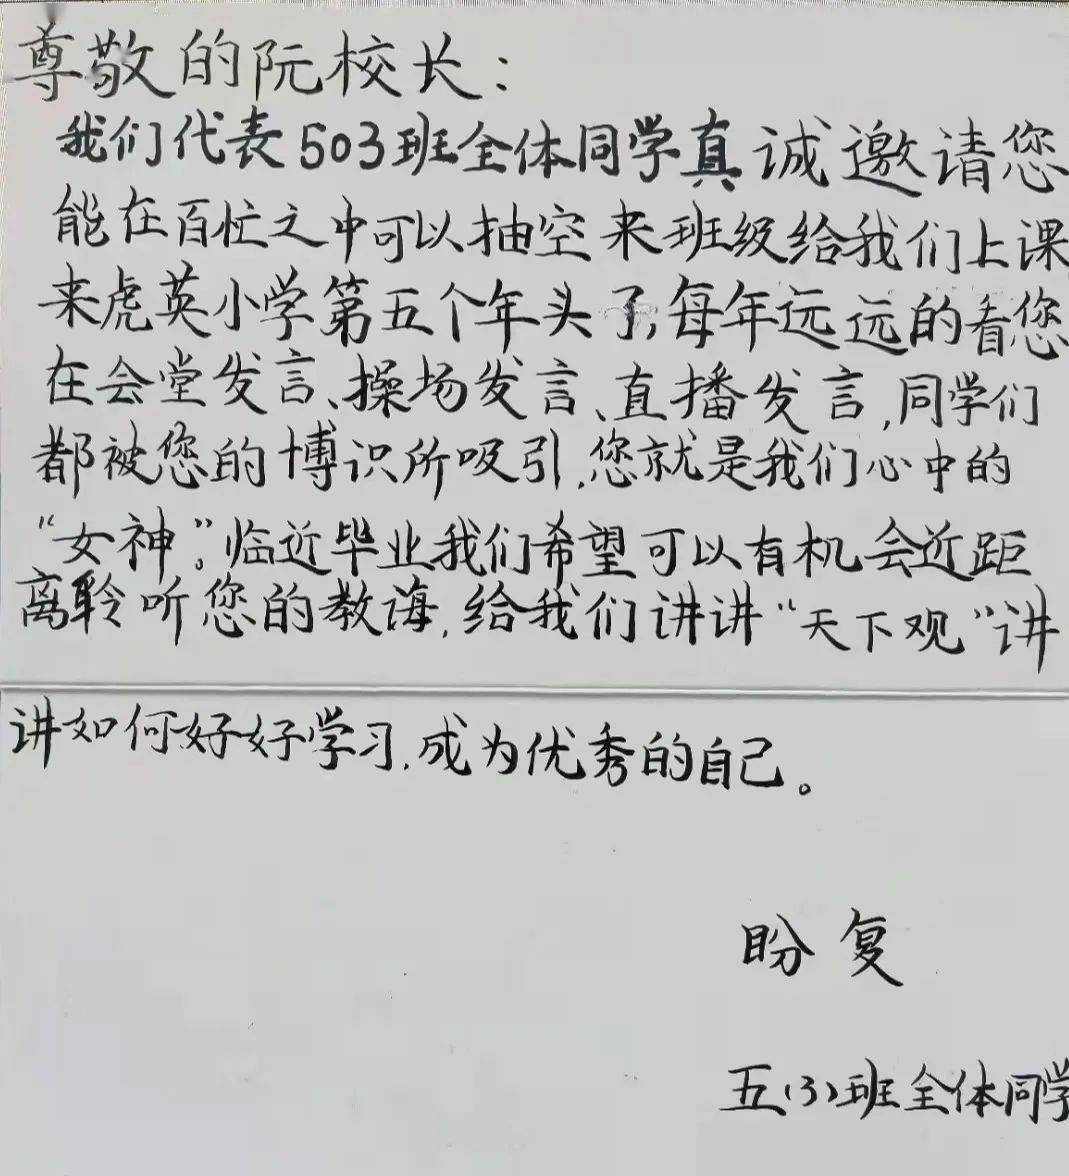 尊敬的阮校长:
我们代表503班全体同学真诚邀请您
能在百忙之中可以抽空来班级给我们上课
来虎英小学第五个年头了,每年远远的看您
在会堂发言、操场发言、直播发言,同学们
都被您的博识所吸引,您就是我们心中的
“女神”。临近毕业我们希望可以有机会近距
离聆听您的教诲,给我们讲讲“天下观”讲
讲如何好好学习,成为优秀的自己。
盼复
五(3)班全体同学